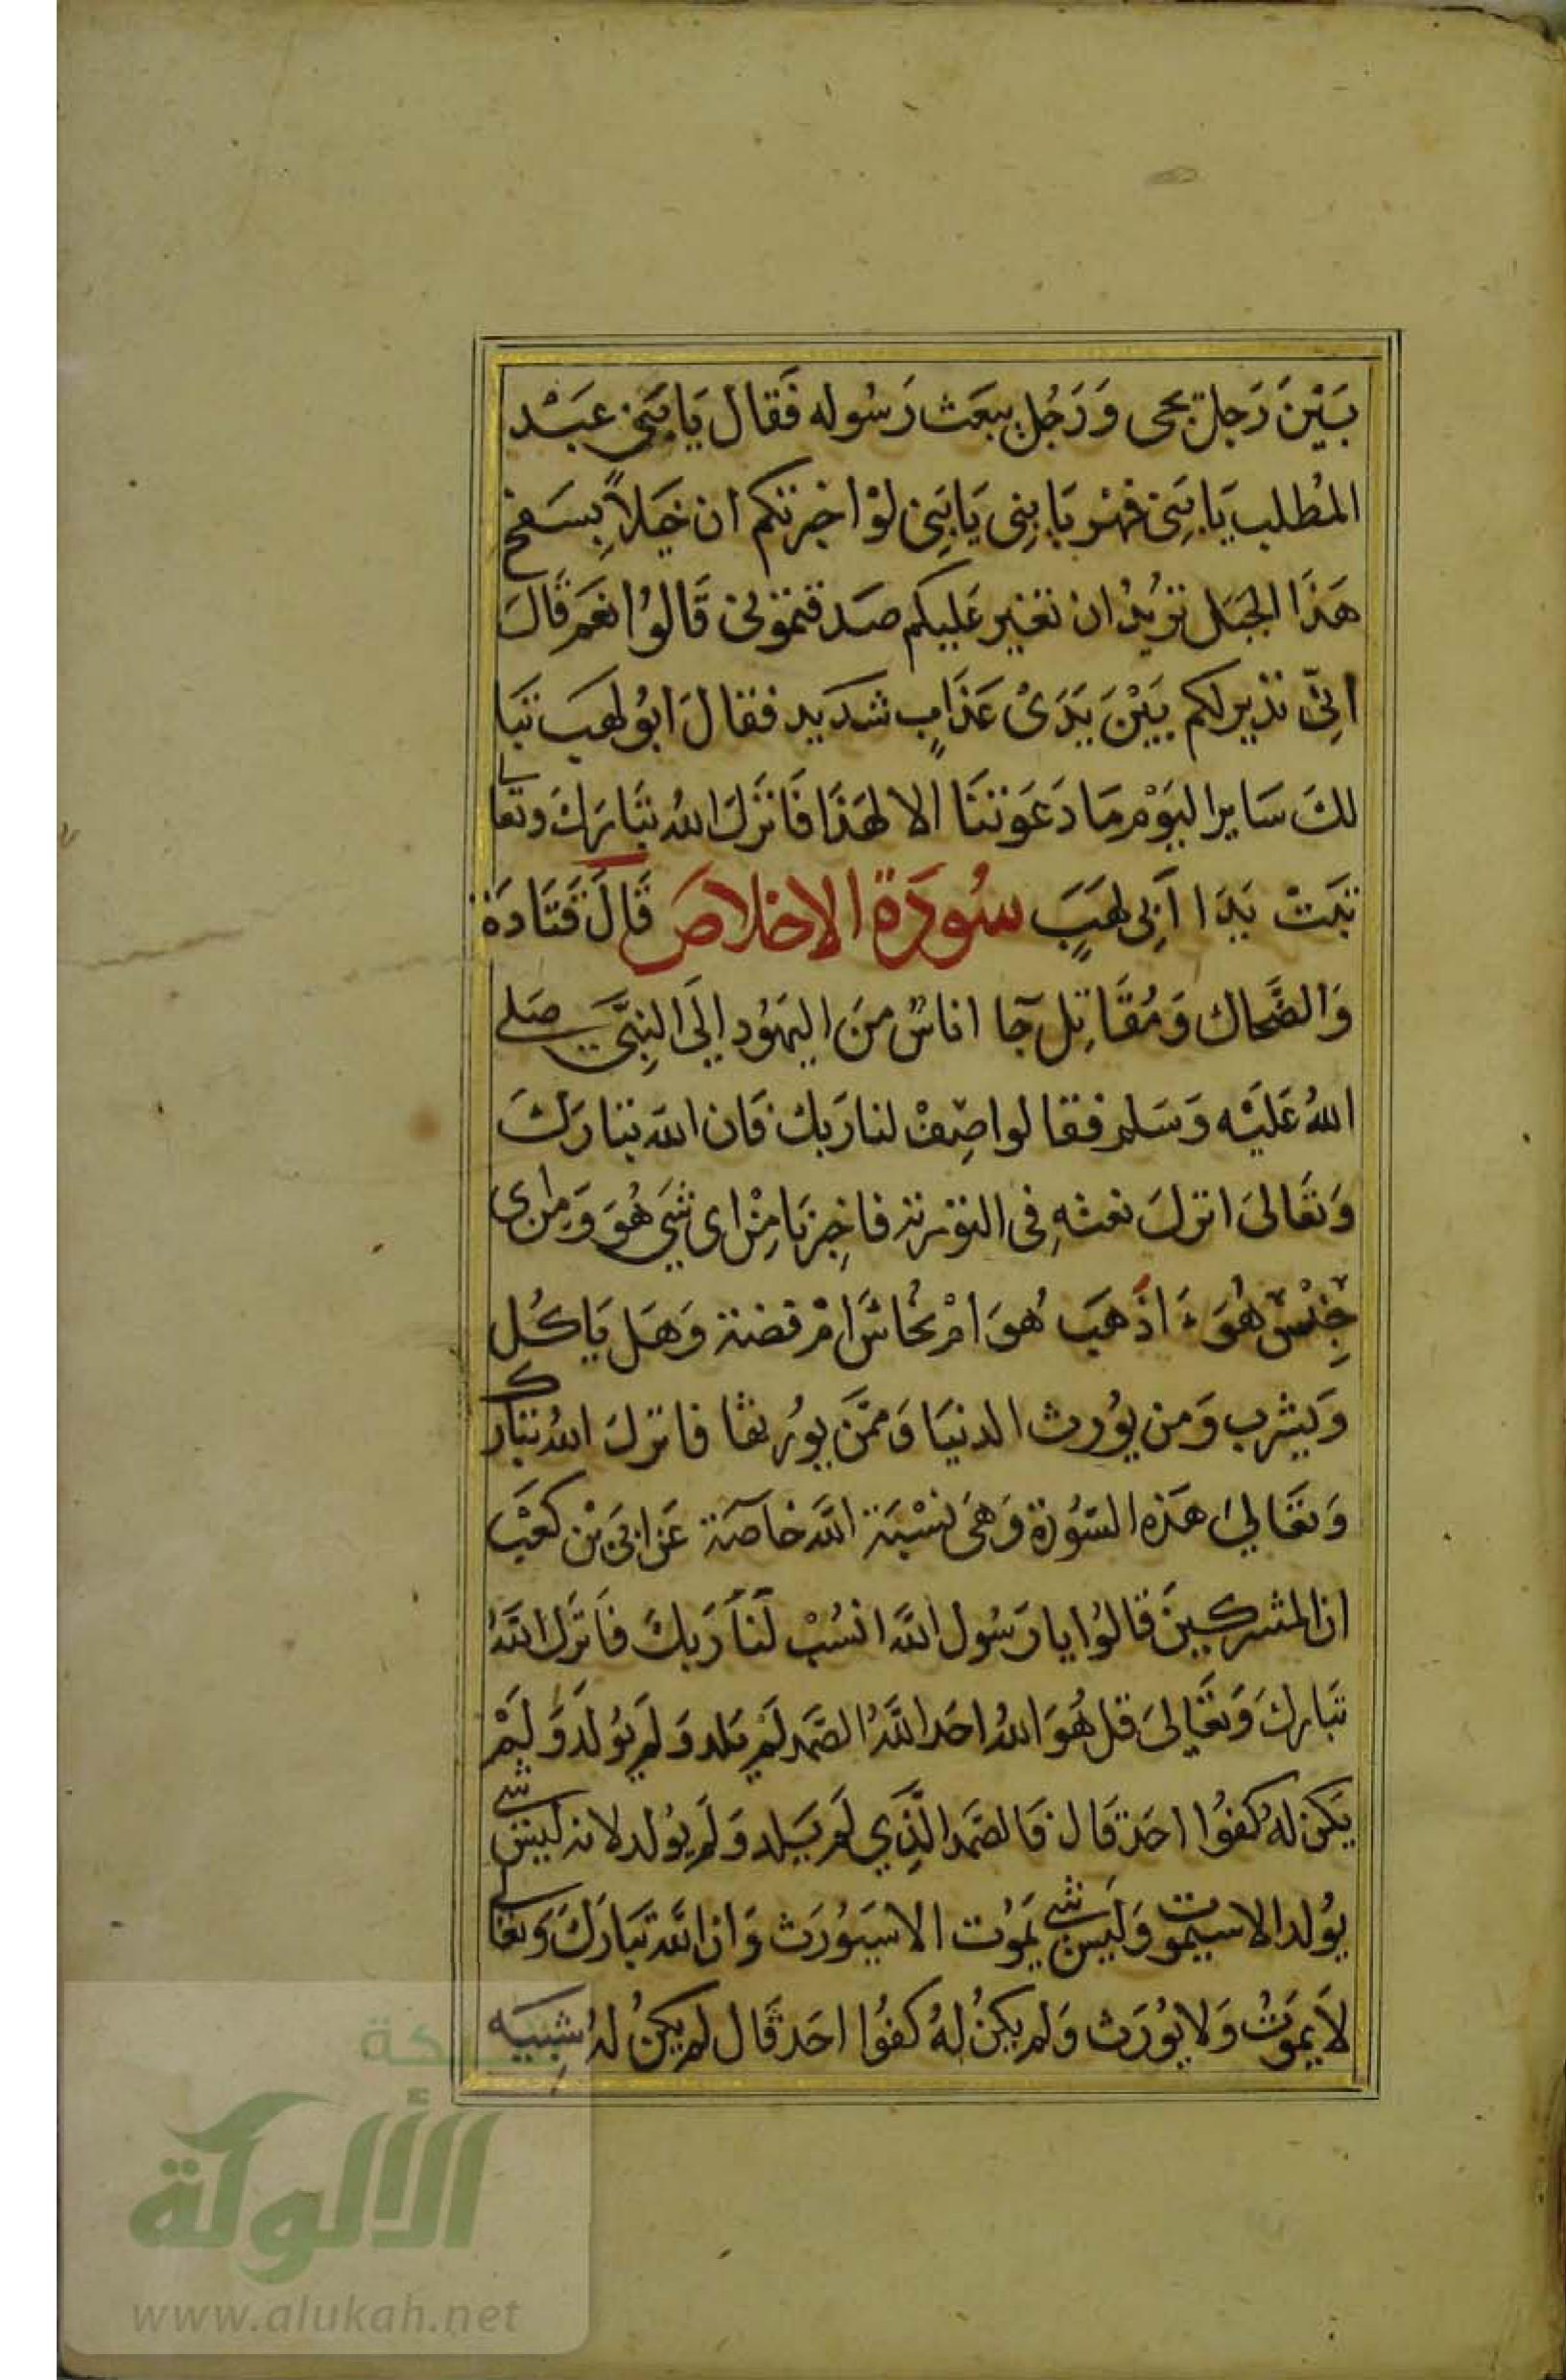 بَيْنَ رَجل يجى وَرَجُل يبعَث رَسُوله فَقال يَا بَنِى عَبْد
المُطلب يَا بَنِى فهْر يَا بنِى يَا بَنِى لوْ اخبرتكم ان خيَلاً بِسَفح
هَذَا الجبَل تريْدُ ان تغير عَليكم صَدقتموُنى قَالوُا نعَم قَالَ
انِّى نذير لكم بَيْنَ يَدَىْ عَذَابٍ شدَيد فقالَ ابوُ لهَب تبَا
لكَ سَاير اليَوْم مَا دَعَوتنَا الا لهَذَا فَانزَلَ اللهُ تبَاركَ وتعَالى
تبَتْ يَدَا اَبِى لهَبٍ سُورَة الإخلاصَ قَالَ قَتَادَة
وَالضَّحاك وَمُقَاتِل جَآ اناسٌ منَ اليهوُد اِلَى النِبَّى صَلى
اللهُ عَليْه وَسَلم فقالوا صِفْ لنا رَبك فَان الله تبَارَكَ
وَتعَالىَ انزلَ نعته فِى التوْرية فاخِبرْنَا مِنْ اى شَى هُوَ وَمِن اى
جِنْسْ هُوَ اذَهَب هُوَ امْ نحُاسَ امْ فضة وَهَل يَاكُل
وَيشرب وَمن يوُرث الدنيَا وَممَّن يوُرثها فانزلَ اللهُ تبارك
وَتعَالىَ هَذه السُّورَة وَهىَ نسْبَة الله خَاصَة عَن ابَى بْن كعْب
ان المشركينَ قالوُا يا رَسُول الله انسُبْ لَنَا رَبكَ فَانزَل اللهُ
تبَاركَ وَتعَالىَ قل هُوَ اللهُ احَد اللهُ الصَّمد لَمْ يَلد وَلَم يوُلد وَلَمْ
يَكن لهُ كفوُا احَد قَال فَالصَّمَد الَّذِي لَم يَلد وَلَم يوُلد لانه ليسَ شى
يوُلد الا سيَموت وَليَسَ شى يَموُت الا سَيوُرَث وَان الله تبَارَكَ وَتعَالى
لاَ يَموُتُ وَلا يوُرَث وَلم يكنُ لهُ كفوُا احَد قَال لم يكنُ لهُ شِبَيه
شبكة
الألوكة
www.alukah.net